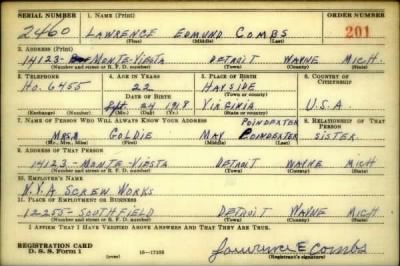 SERIAL NUMBER 1. NAME (Print) ORDER NUMBER
2460 LAWRENCE EDMUND COMBS 201
(First) (Middle) (Last)
2. ADDRESS (Print)
14123 MONTE-VIESTA DETROIT WAYNE MICH.
(Number and street or R. F. D. number) (Town) (County) (State)
3. TELEPHONE 4. AGE IN YEARS 5. PLACE OF BIRTH 6. COUNTRY OF CITIZENSHIP
HO. 6455 22 HAYSIDE
DATE OF BIRTH (Town or county)
Sept. 24 1918 VIRGINIA U.S.A.
(Exchange) (Number) (Mo.) (Day) (Yr.) (State or country)
7. NAME OF PERSON WHO WILL ALWAYS KNOW YOUR ADDRESS 8. RELATIONSHIP OF THAT PERSON
POINDEXTER
GOLDIE MAY POINDEXTER SISTER.
(Mr., Mrs., Miss) (First) (Middle) (Last)
9. ADDRESS OF THAT PERSON
14123 - MONTE-VIESTA DETROIT WAYNE MICH
(Number and street or R. F. D. number) (Town) (County) (State)
10. EMPLOYER'S NAME
N.Y.A SCREW WORKS
11. PLACE OF EMPLOYMENT OR BUSINESS
12255 - SOUTHFIELD DETROIT WAYNE MICH
(Number and street or R. F. D. number) (Town) (County) (State)
I AFFIRM THAT I HAVE VERIFIED ABOVE ANSWERS AND THAT THEY ARE TRUE.
REGISTRATION CARD
D. S. S. Form 1 (over) Lawrence E Combs
(Registrant's signature)